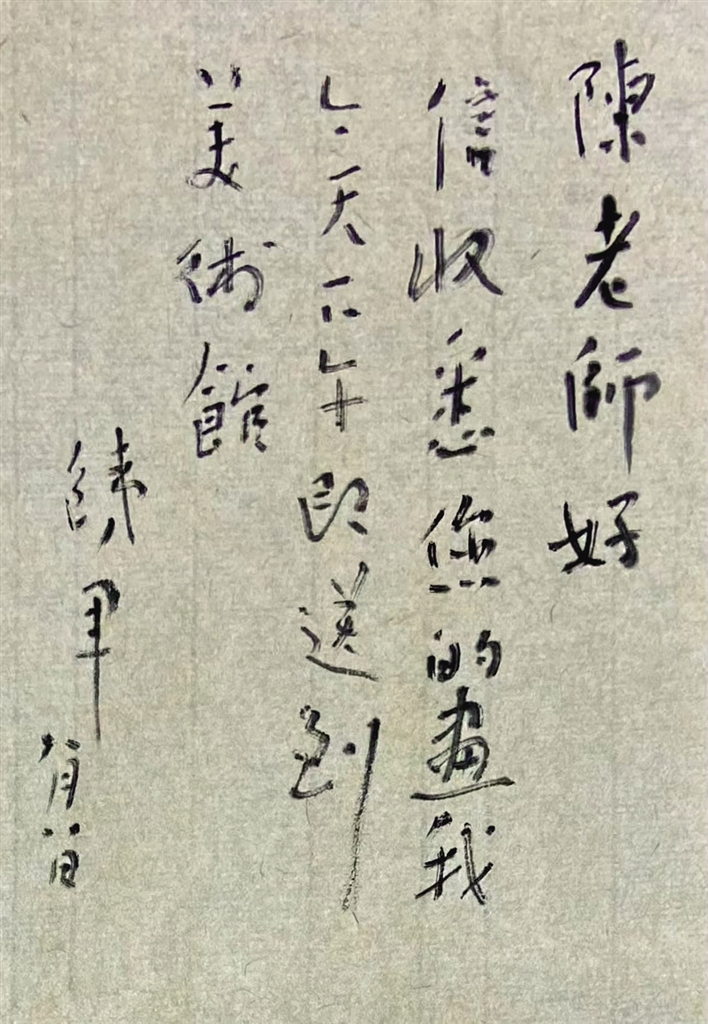 陳老師好
信收悉您的畫我
今天下午即送到
美術館
八月八日